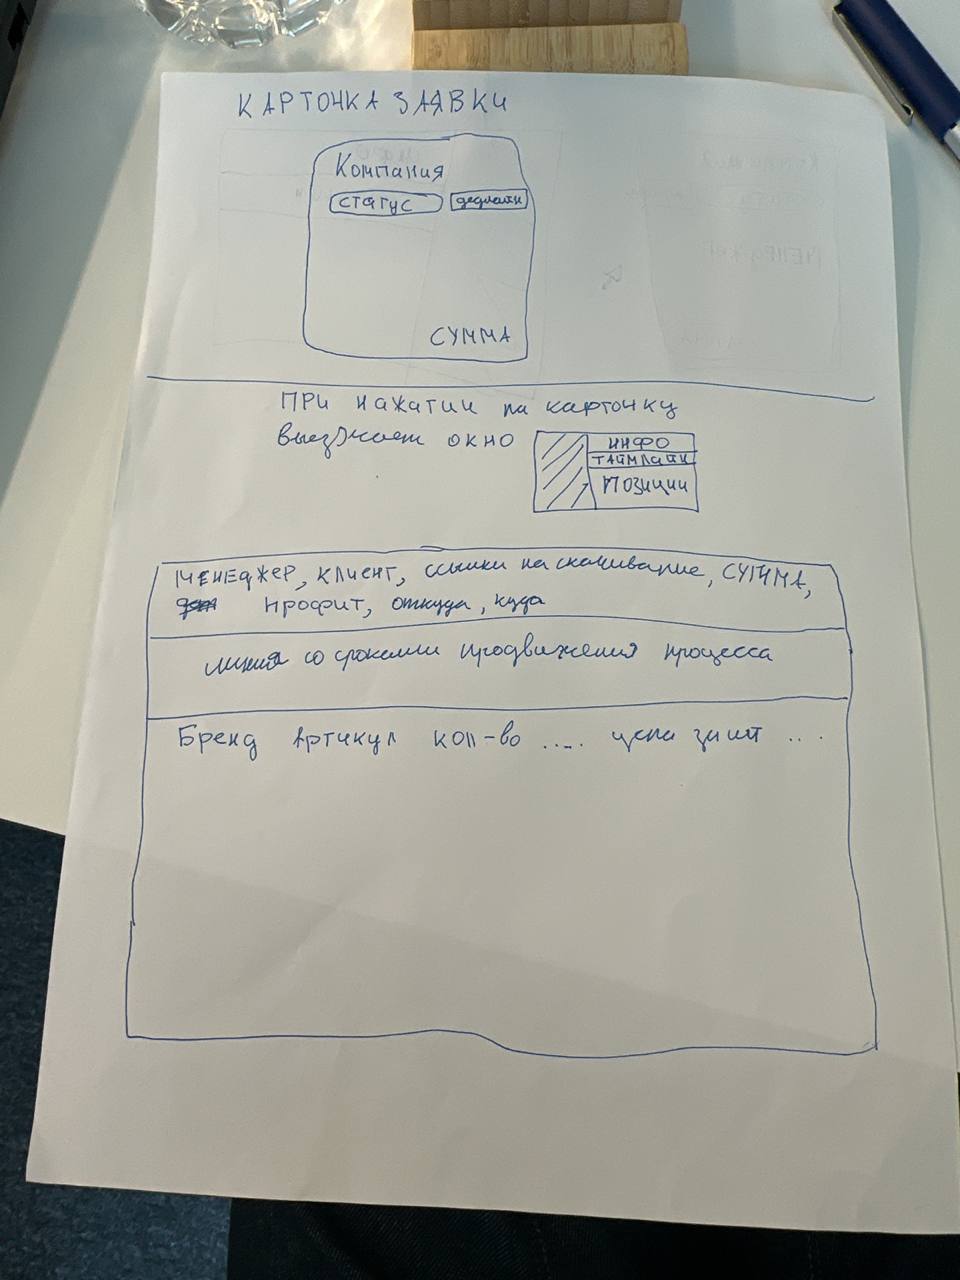 КАРТОЧКА ЗАЯВКИ
Компания
статус дедлайн
СУММА
ПРИ нажатии на карточку
выезжает окно
ИНФО
ТАЙМЛАЙН
Позиции
МЕНЕДЖЕР, КЛИЕНТ, ссылки на скачивание, СУММА,
профит, откуда, куда
линия со сроками продвижения процесса
Бренд Артикул кол-во .... цена за шт ...